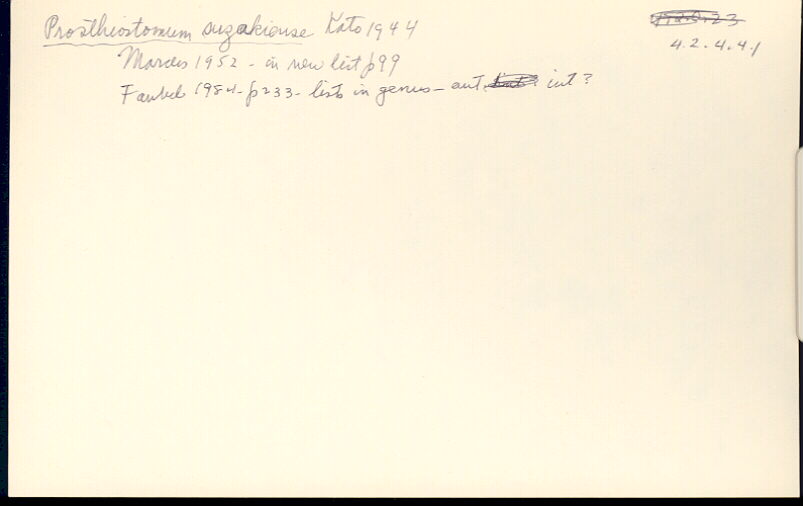 Prosthiostomum suzakiense Kato 1944
4.2.4.4.1
Marcus 1952 - in new list p 99
Faubel 1984 - p 233 - lists in genus - aut. int?